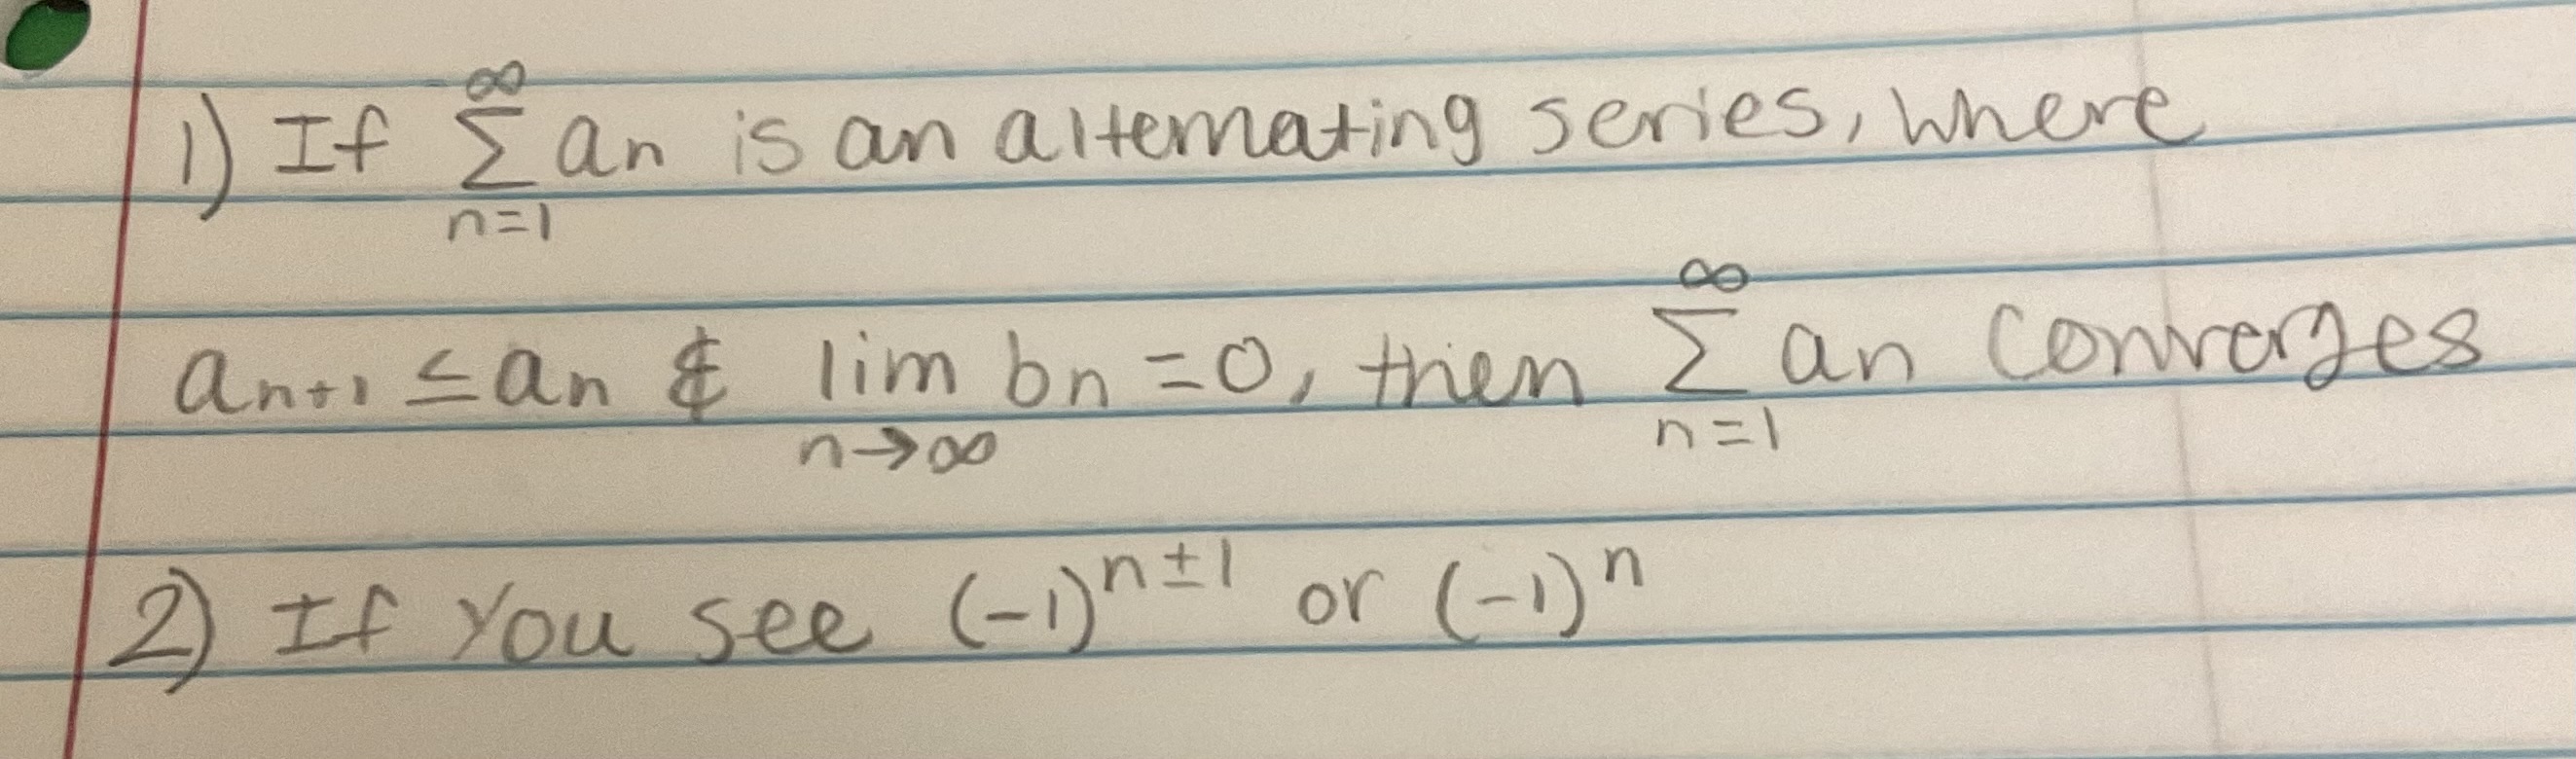 1) If ∞∑n=1 an is an alternating series, where
an+1 ≤ an & lim n→∞ bn = 0, then ∞∑n=1 an converges
2) If you see (-1)^n±1 or (-1)^n